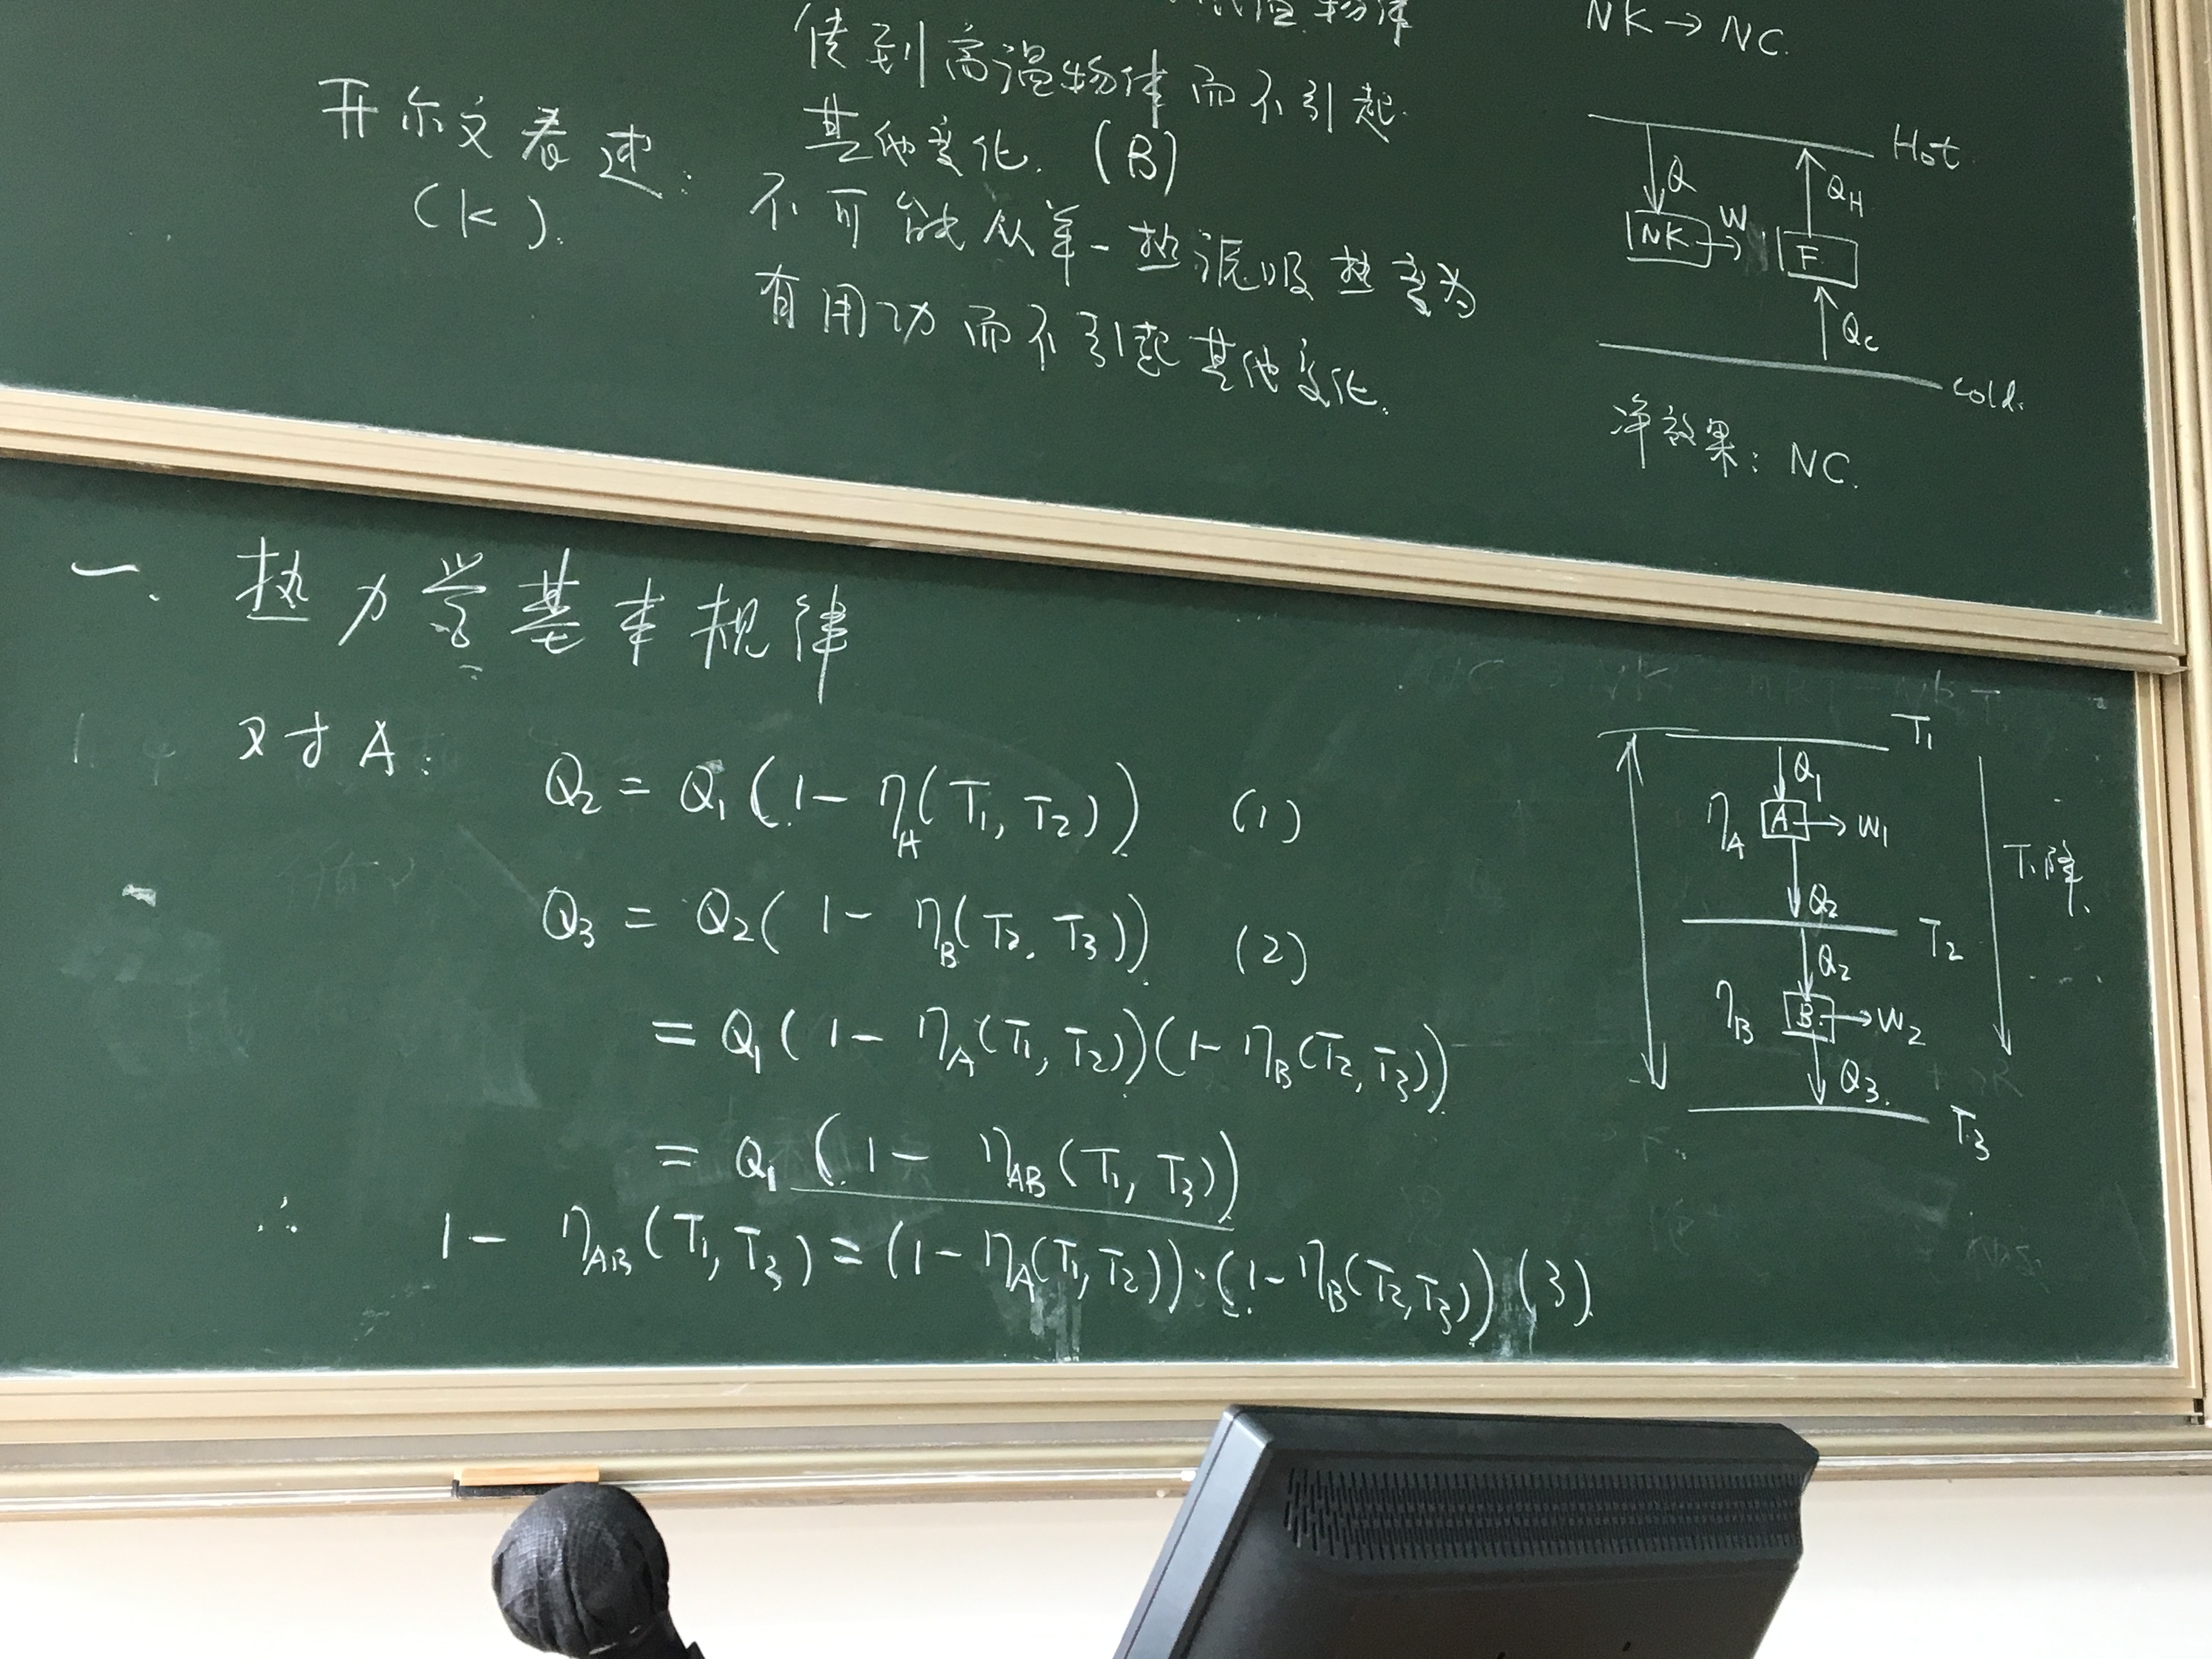 低温物体
传到高温物体而不引起
其他变化. (B)
开尔文表述:
(K).
不可能从单一热源吸热变为
有用功而不引起其他变化.
NK → NC.
Hot
Q
QH
NK
W
F
Qc
cold.
净效果: NC.
一. 热力学基本规律
对 A:
Q₂ = Q₁(1 - η_A(T₁, T₂)) (1)
Q₃ = Q₂(1 - η_B(T₂, T₃)) (2)
= Q₁(1 - η_A(T₁, T₂))(1 - η_B(T₂, T₃))
= Q₁(1 - η_AB(T₁, T₃))
∴ 1 - η_AB(T₁, T₃) = (1 - η_A(T₁, T₂))·(1 - η_B(T₂, T₃)) (3)
T₁
Q₁
η_A
A
W₁
Q₂
T₂
Q₂
η_B
B
W₂
Q₃
T₃
T降